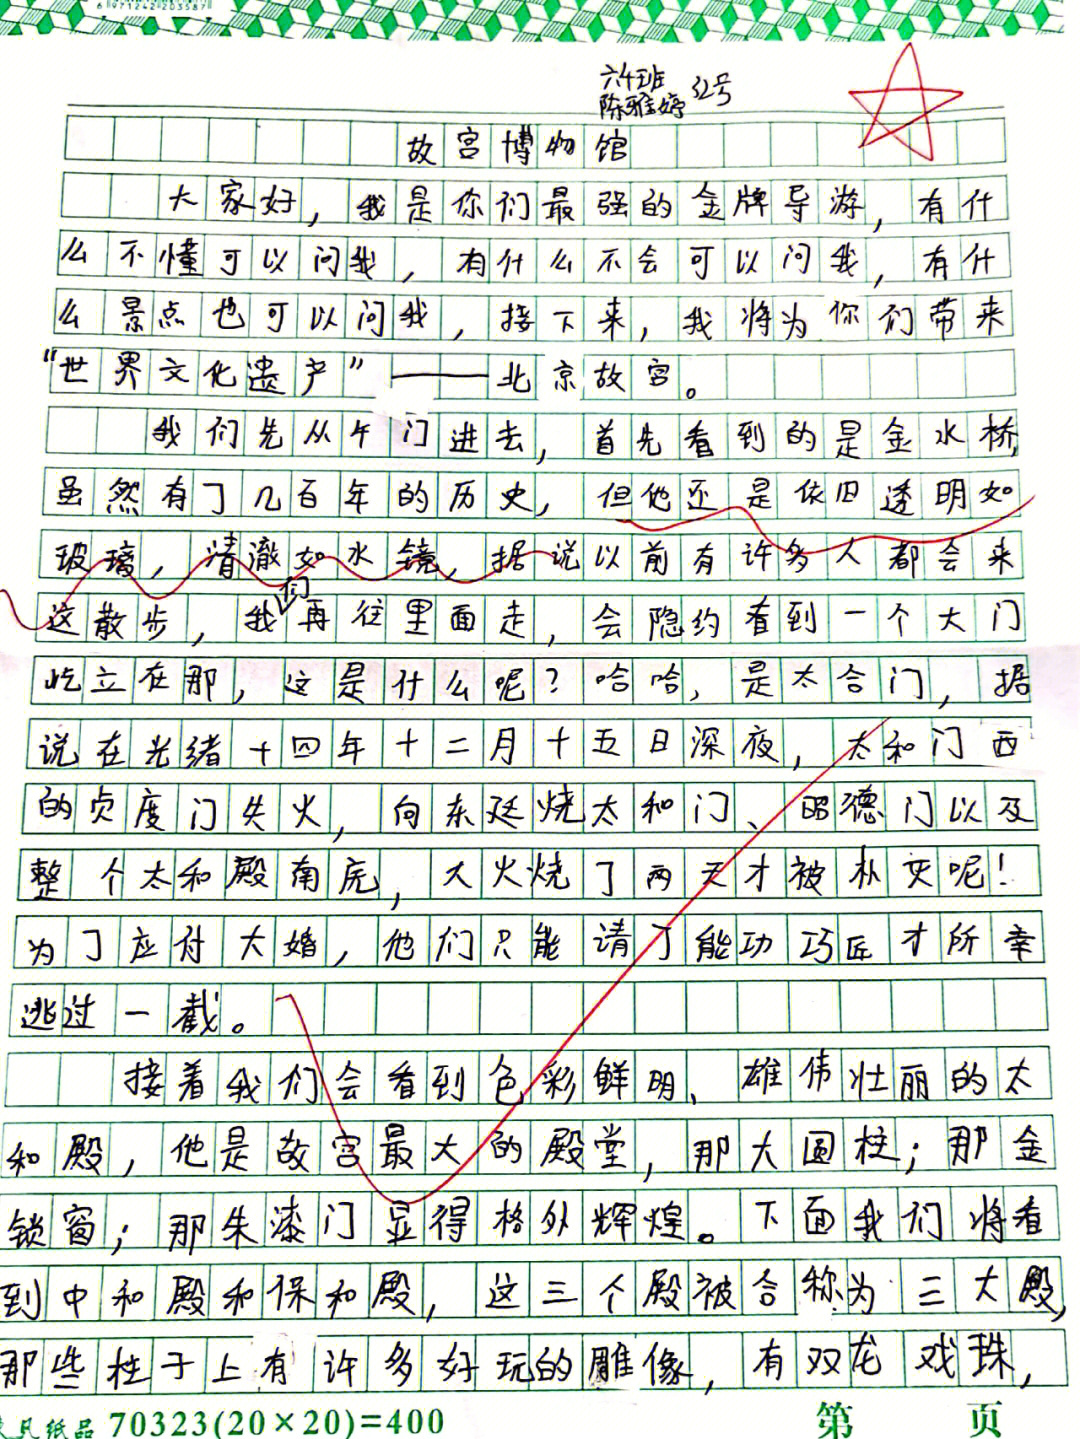 6971842203587
六4班
陈雅婷 32号
故宫博物馆
大家好，我是你们最强的金牌导游，有什
么不懂可以问我，有什么不会可以问我，有什
么景点也可以问我，接下来，我将为你们带来
“世界文化遗产”——北京故宫。
我们先从午门进去，首先看到的是金水桥，
虽然有了几百年的历史，但他还是依旧透明如
玻璃，清澈如水镜，据说以前有许多人都会来
这散步，我们再往里面走，会隐约看到一个大门
屹立在那，这是什么呢？哈哈，是太合门，据
说在光绪十四年十二月十五日深夜，太和门西
的贞度门失火，向东延烧太和门、昭德门以及
整个太和殿南庑，大火烧了两天才被朴灭呢！
为了应付大婚，他们只能请了能功巧匠才所幸
逃过一截。
接着我们会看到色彩鲜明、雄伟壮丽的太
和殿，他是故宫最大的殿堂，那大圆柱；那金
锁窗；那朱漆门显得格外辉煌。下面我们将看
到中和殿和保和殿，这三个殿被合称为三大殿，
那些柱子上有许多好玩的雕像，有双龙戏珠，
凡纸品 70323(20×20)=400 第 页